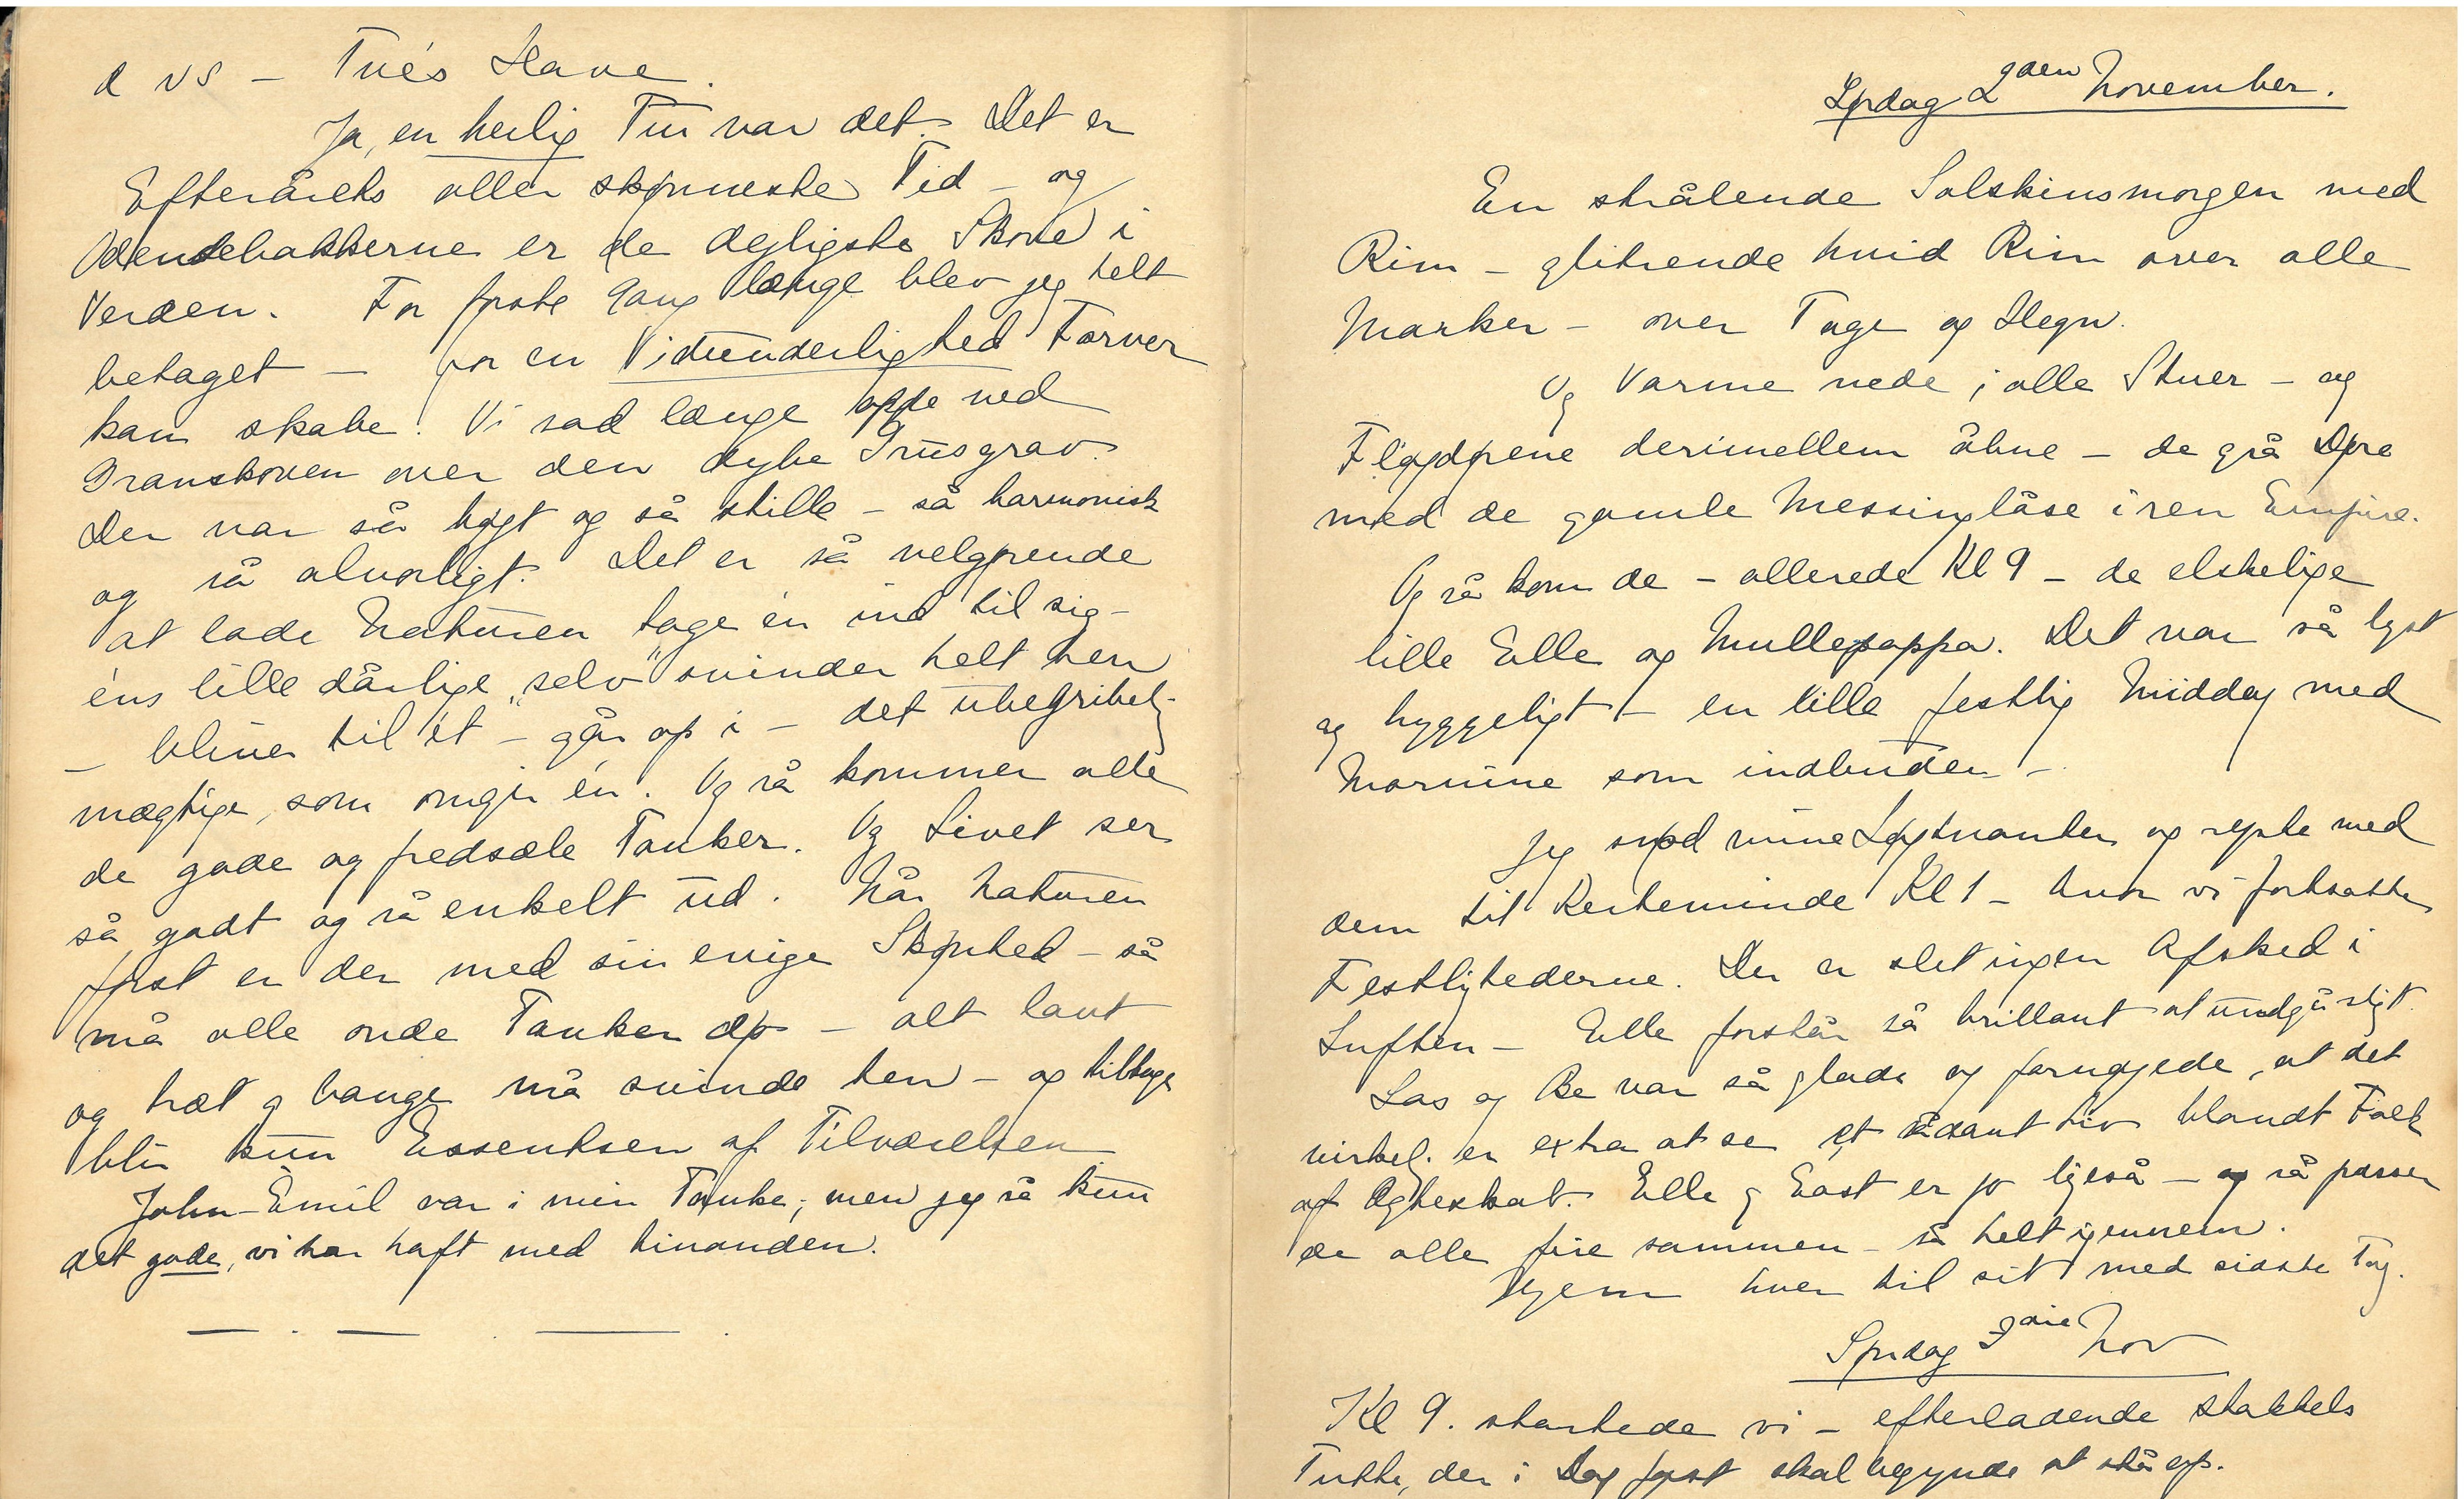 d vs – Tué's Have.
Ja, en herlig Tur var det. Det er
Efterårets aller skjønneste Tid – og
Odensebakkerne er de dejligste Skove i
Verden. For første Gang længe blev jeg helt
betaget – for en Vidunderlighed Farver
kan skabe! Vi sad længe oppe ved
Granskoven over den dybe Grusgrav.
Der var så højt og så stille – så harmonisk
og så alvorligt. Det er så velgørende
at lade Naturen tage én ind til sig –
éns lille dårlige "selv" svinder helt hen
– bliver til ét – går op i – det ubegribelig
mægtige, som omgir én. Og så kommer alle
de gode og fredsæle Tanker. Og Livet ser
så godt og så enkelt ud. Når Naturen
først er der med sin evige Skønhed – så
må alle onde Tanker dø – alt lavt
og træt og bange må svinde hen – og tilbage
blir kun Essentsen af Tilværelsen
John-Emil var i min Tanke; men jeg så kun
det gode, vi har haft med hinanden.
Lørdag 2den November.
En strålende Solskinsmorgen med
Rim – glitrende hvid Rim over alle
Marker – over Tage og Hegn.
Og Varme nede i alle Stuer – og
Fløjdørene derimellem åbne – de grå Døre
med de gamle Messinglåse i ren Empire.
Og så kom de – allerede Kl 9 – de elskelige
lille Elle og Mullepappa. Det var så lyst
og hyggeligt – en lille festlig Middag med
Mornine som indbuden –
Jeg nød mine Løjtnanter og rejste med
dem til Kerteminde Kl 1 – hvor vi fortsatte
Festlighederne. Der er slet ingen Afsked i
Luften – Elle forstår så brillant at undgå sligt.
Las og Be var så glade og fornøjede, at det
virkel. er extra at se et sådant Liv blandt Folk
af Ægteskab. Elle og East er jo ligeså – og så passer
de alle fire sammen – så helt igennem.
Hjem hver til sit med sidste Tog.
Søndag 3die Nov
Kl 9. startede vi – efterladende stakkels
Tutte, der i Dag først skal begynde at stå op.